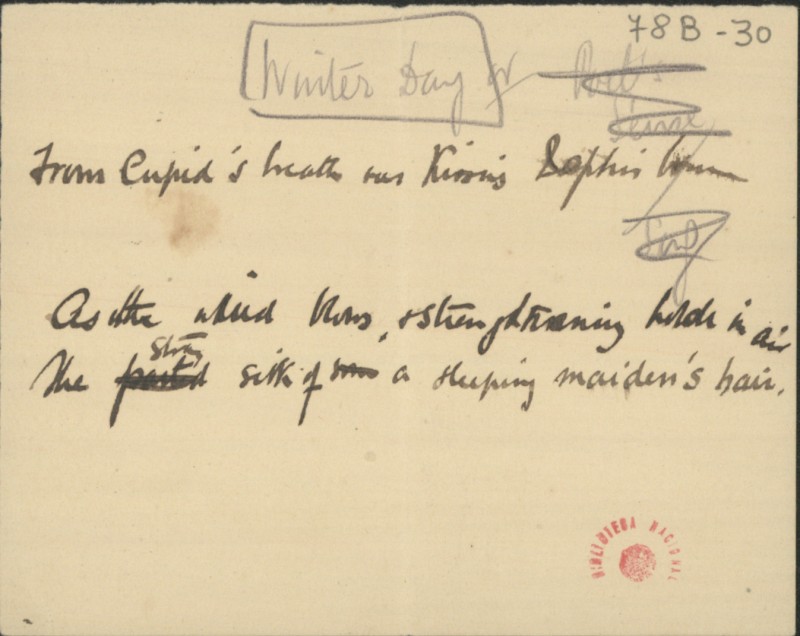 78B-30
Winter Day or
From Cupid's breath was kissing
As the wind blows, & strenghtening holds in air
stray
The silk of a sleeping maiden's hair.
BIBLIOTECA NACIONAL